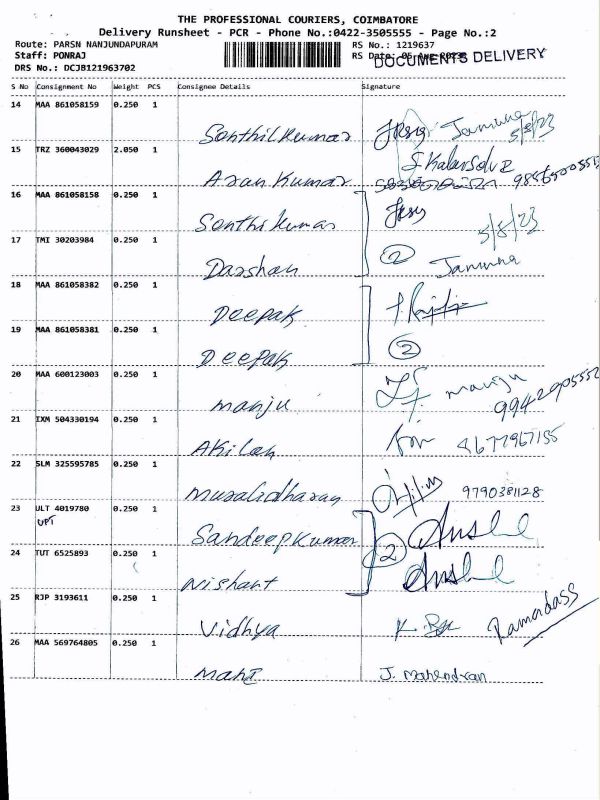 THE PROFESSIONAL COURIERS, COIMBATORE
Delivery Runsheet - PCR - Phone No.:0422-3505555 - Page No.:2
Route: PARSN NANJUNDAPURAM
Staff: PONRAJ
DRS No.: DCJB121963702
RS No.: 1219637
RS Date: 05
DOCUMENTS DELIVERY
S No Consignment No Weight PCS Consignee Details Signature
14 MAA 861058159 0.250 1 Senthilkumar Jamuna 5/8/23
15 TRZ 360043029 2.050 1 Aran Kumar
16 MAA 861058158 0.250 1 Senthi kumar 5/8/23
17 TMI 30203984 0.250 1 Darshan 2 Jamuna
18 MAA 861058382 0.250 1 Deepak
19 MAA 861058381 0.250 1 Deepak 2
20 MAA 600123003 0.250 1 manju manju
21 IXM 504330194 0.250 1 AKilan
22 SLM 325595785 0.250 1 Muralidharan 9790381128
23 ULT 4019780 0.250 1 Sandeep Kumar
UPT
24 TUT 6525893 0.250 1 Nishant 2
25 RJP 3193611 0.250 1 Vidhya Ramondass
26 MAA 569764805 0.250 1 J. Mahendran